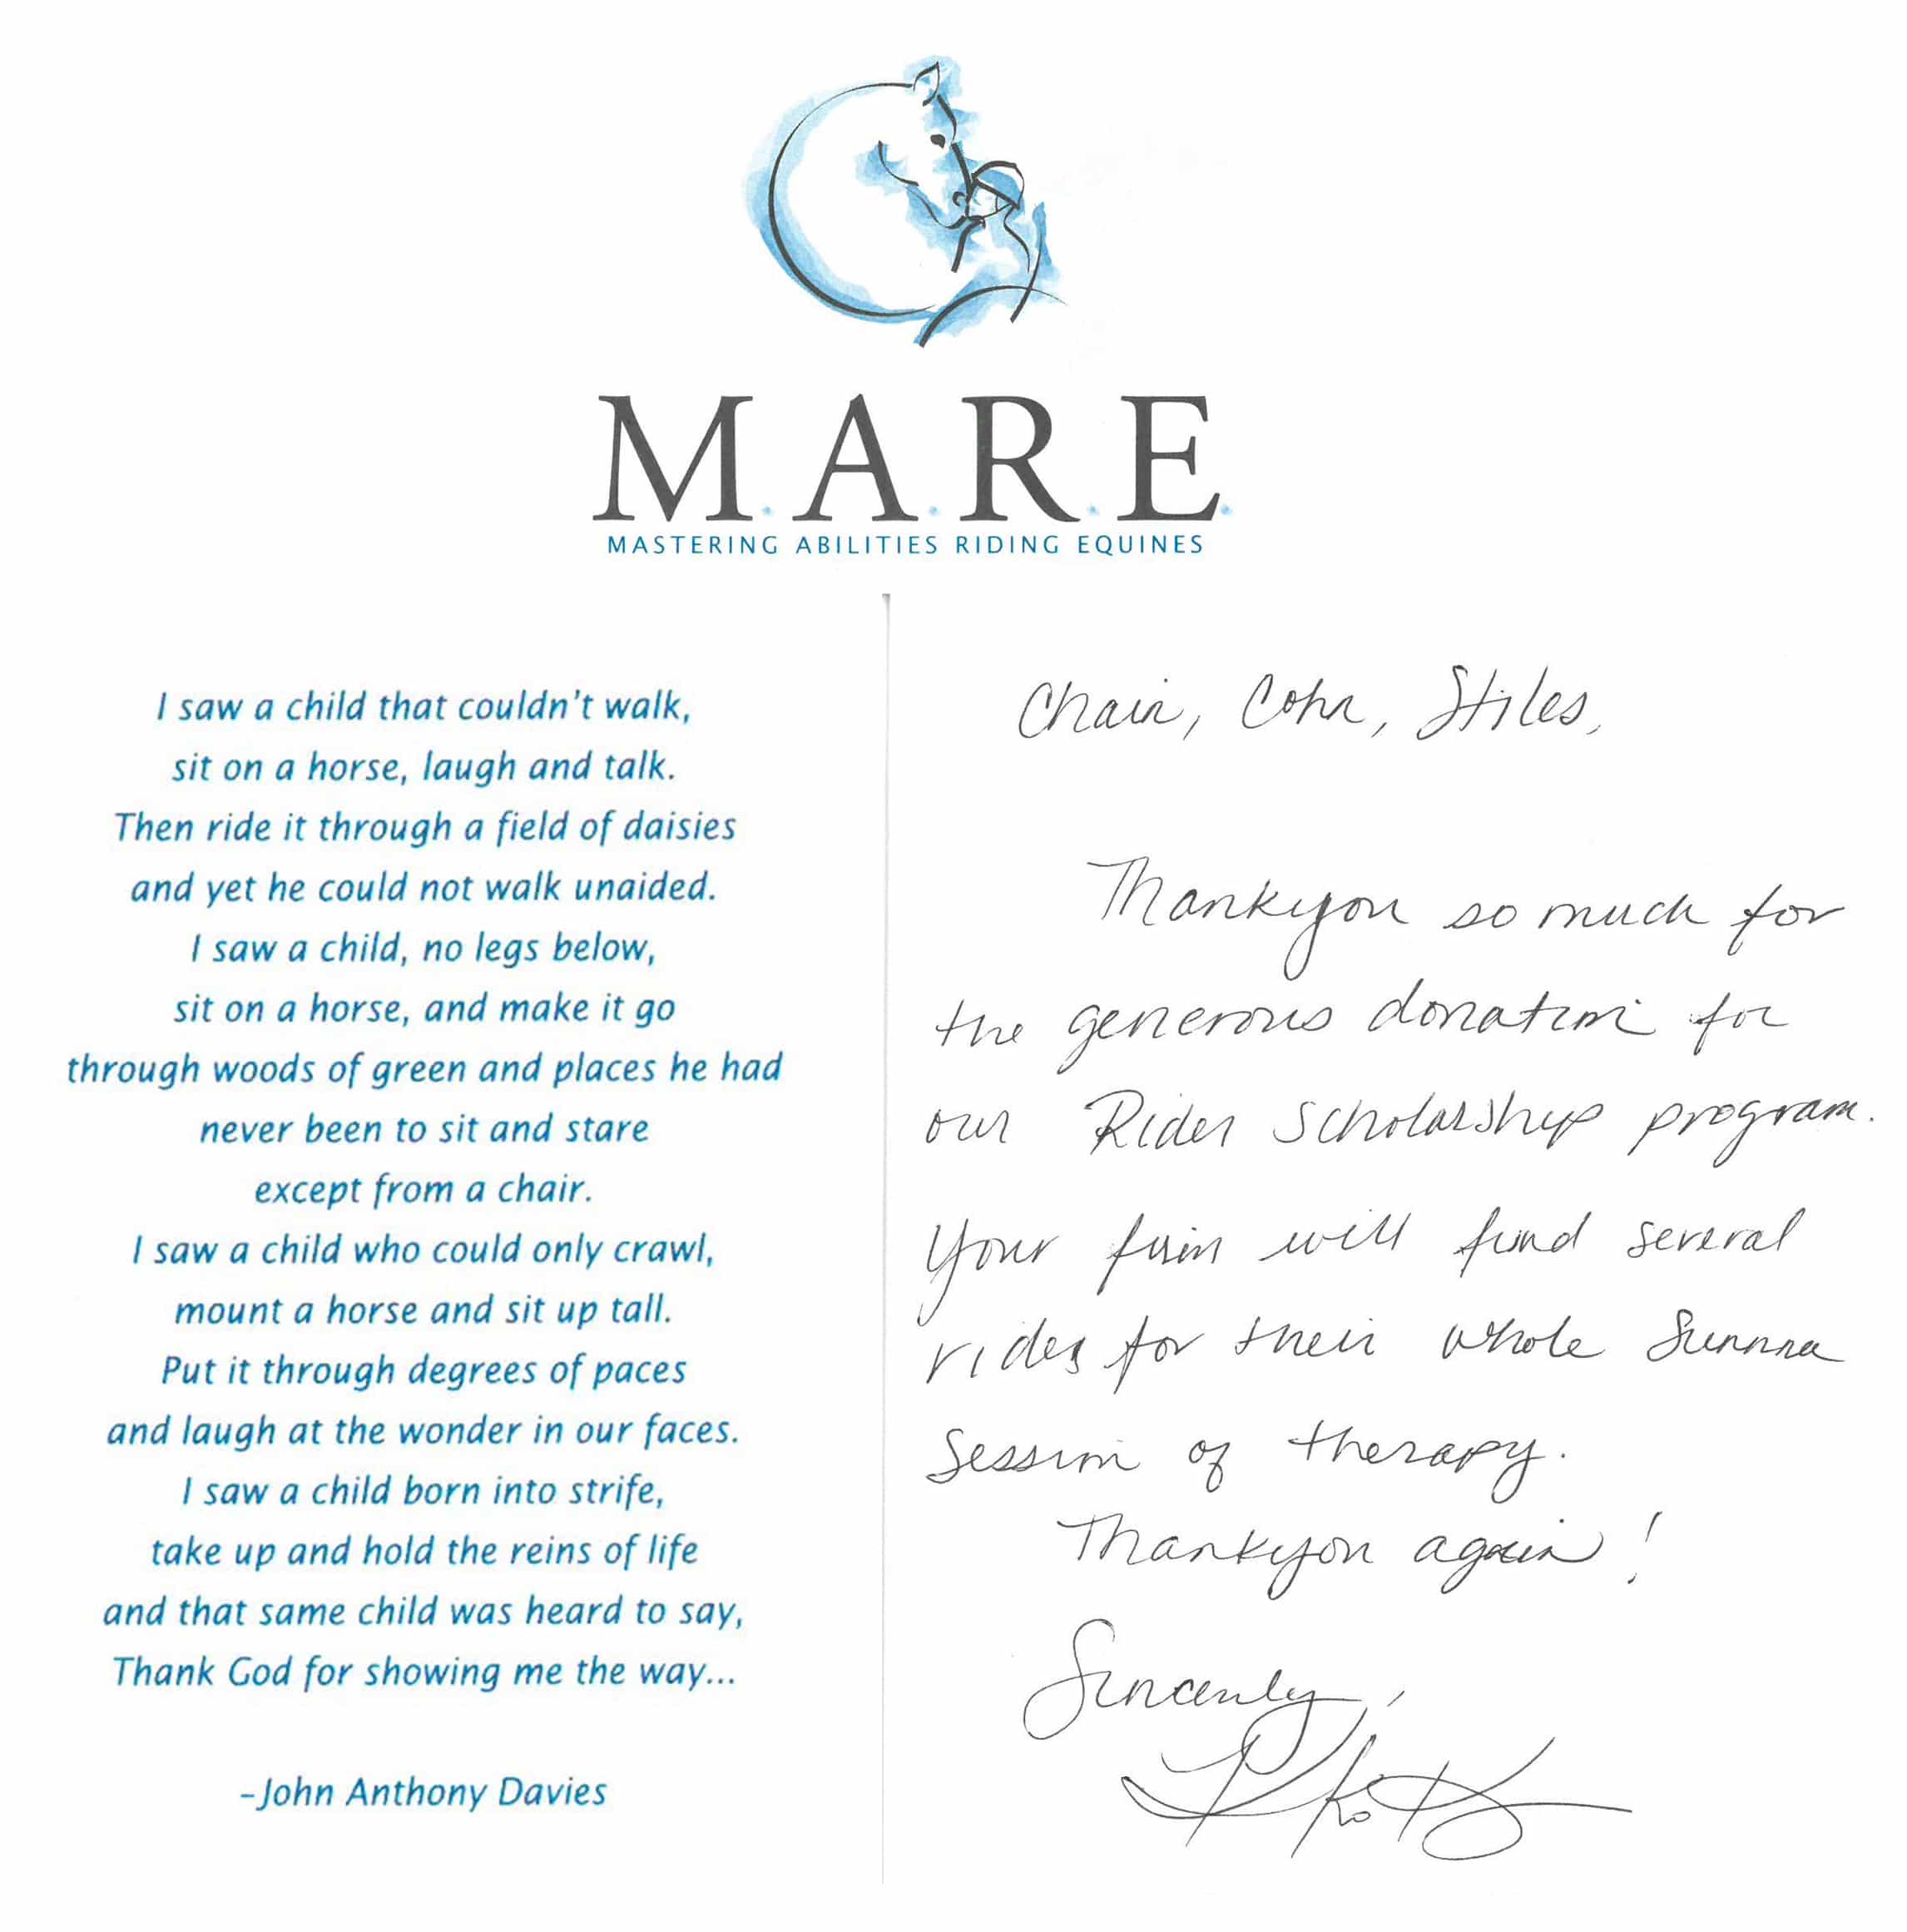 M.A.R.E.
MASTERING ABILITIES RIDING EQUINES
I saw a child that couldn't walk,
sit on a horse, laugh and talk.
Then ride it through a field of daisies
and yet he could not walk unaided.
I saw a child, no legs below,
sit on a horse, and make it go
through woods of green and places he had
never been to sit and stare
except from a chair.
I saw a child who could only crawl,
mount a horse and sit up tall.
Put it through degrees of paces
and laugh at the wonder in our faces.
I saw a child born into strife,
take up and hold the reins of life
and that same child was heard to say,
Thank God for showing me the way...
–John Anthony Davies
Chain, Cohn, Stiles,
Thankyou so much for
the generous donation for
our Rider Scholarship program.
Your firm will fund several
rides for their whole Summer
Session of therapy.
Thankyou again!
Sincerely,